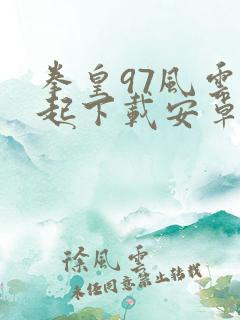 拳皇97風雲
起下載安卓
徐風雲
未经同意禁止转载